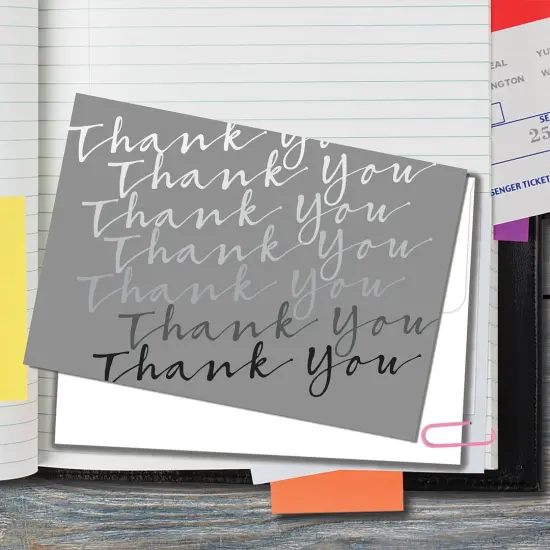 Thank You
Thank You
Thank You
Thank You
Thank You
Thank You
Thank You
EAL YU
NGTON W
SE
25
SENGER TICKET